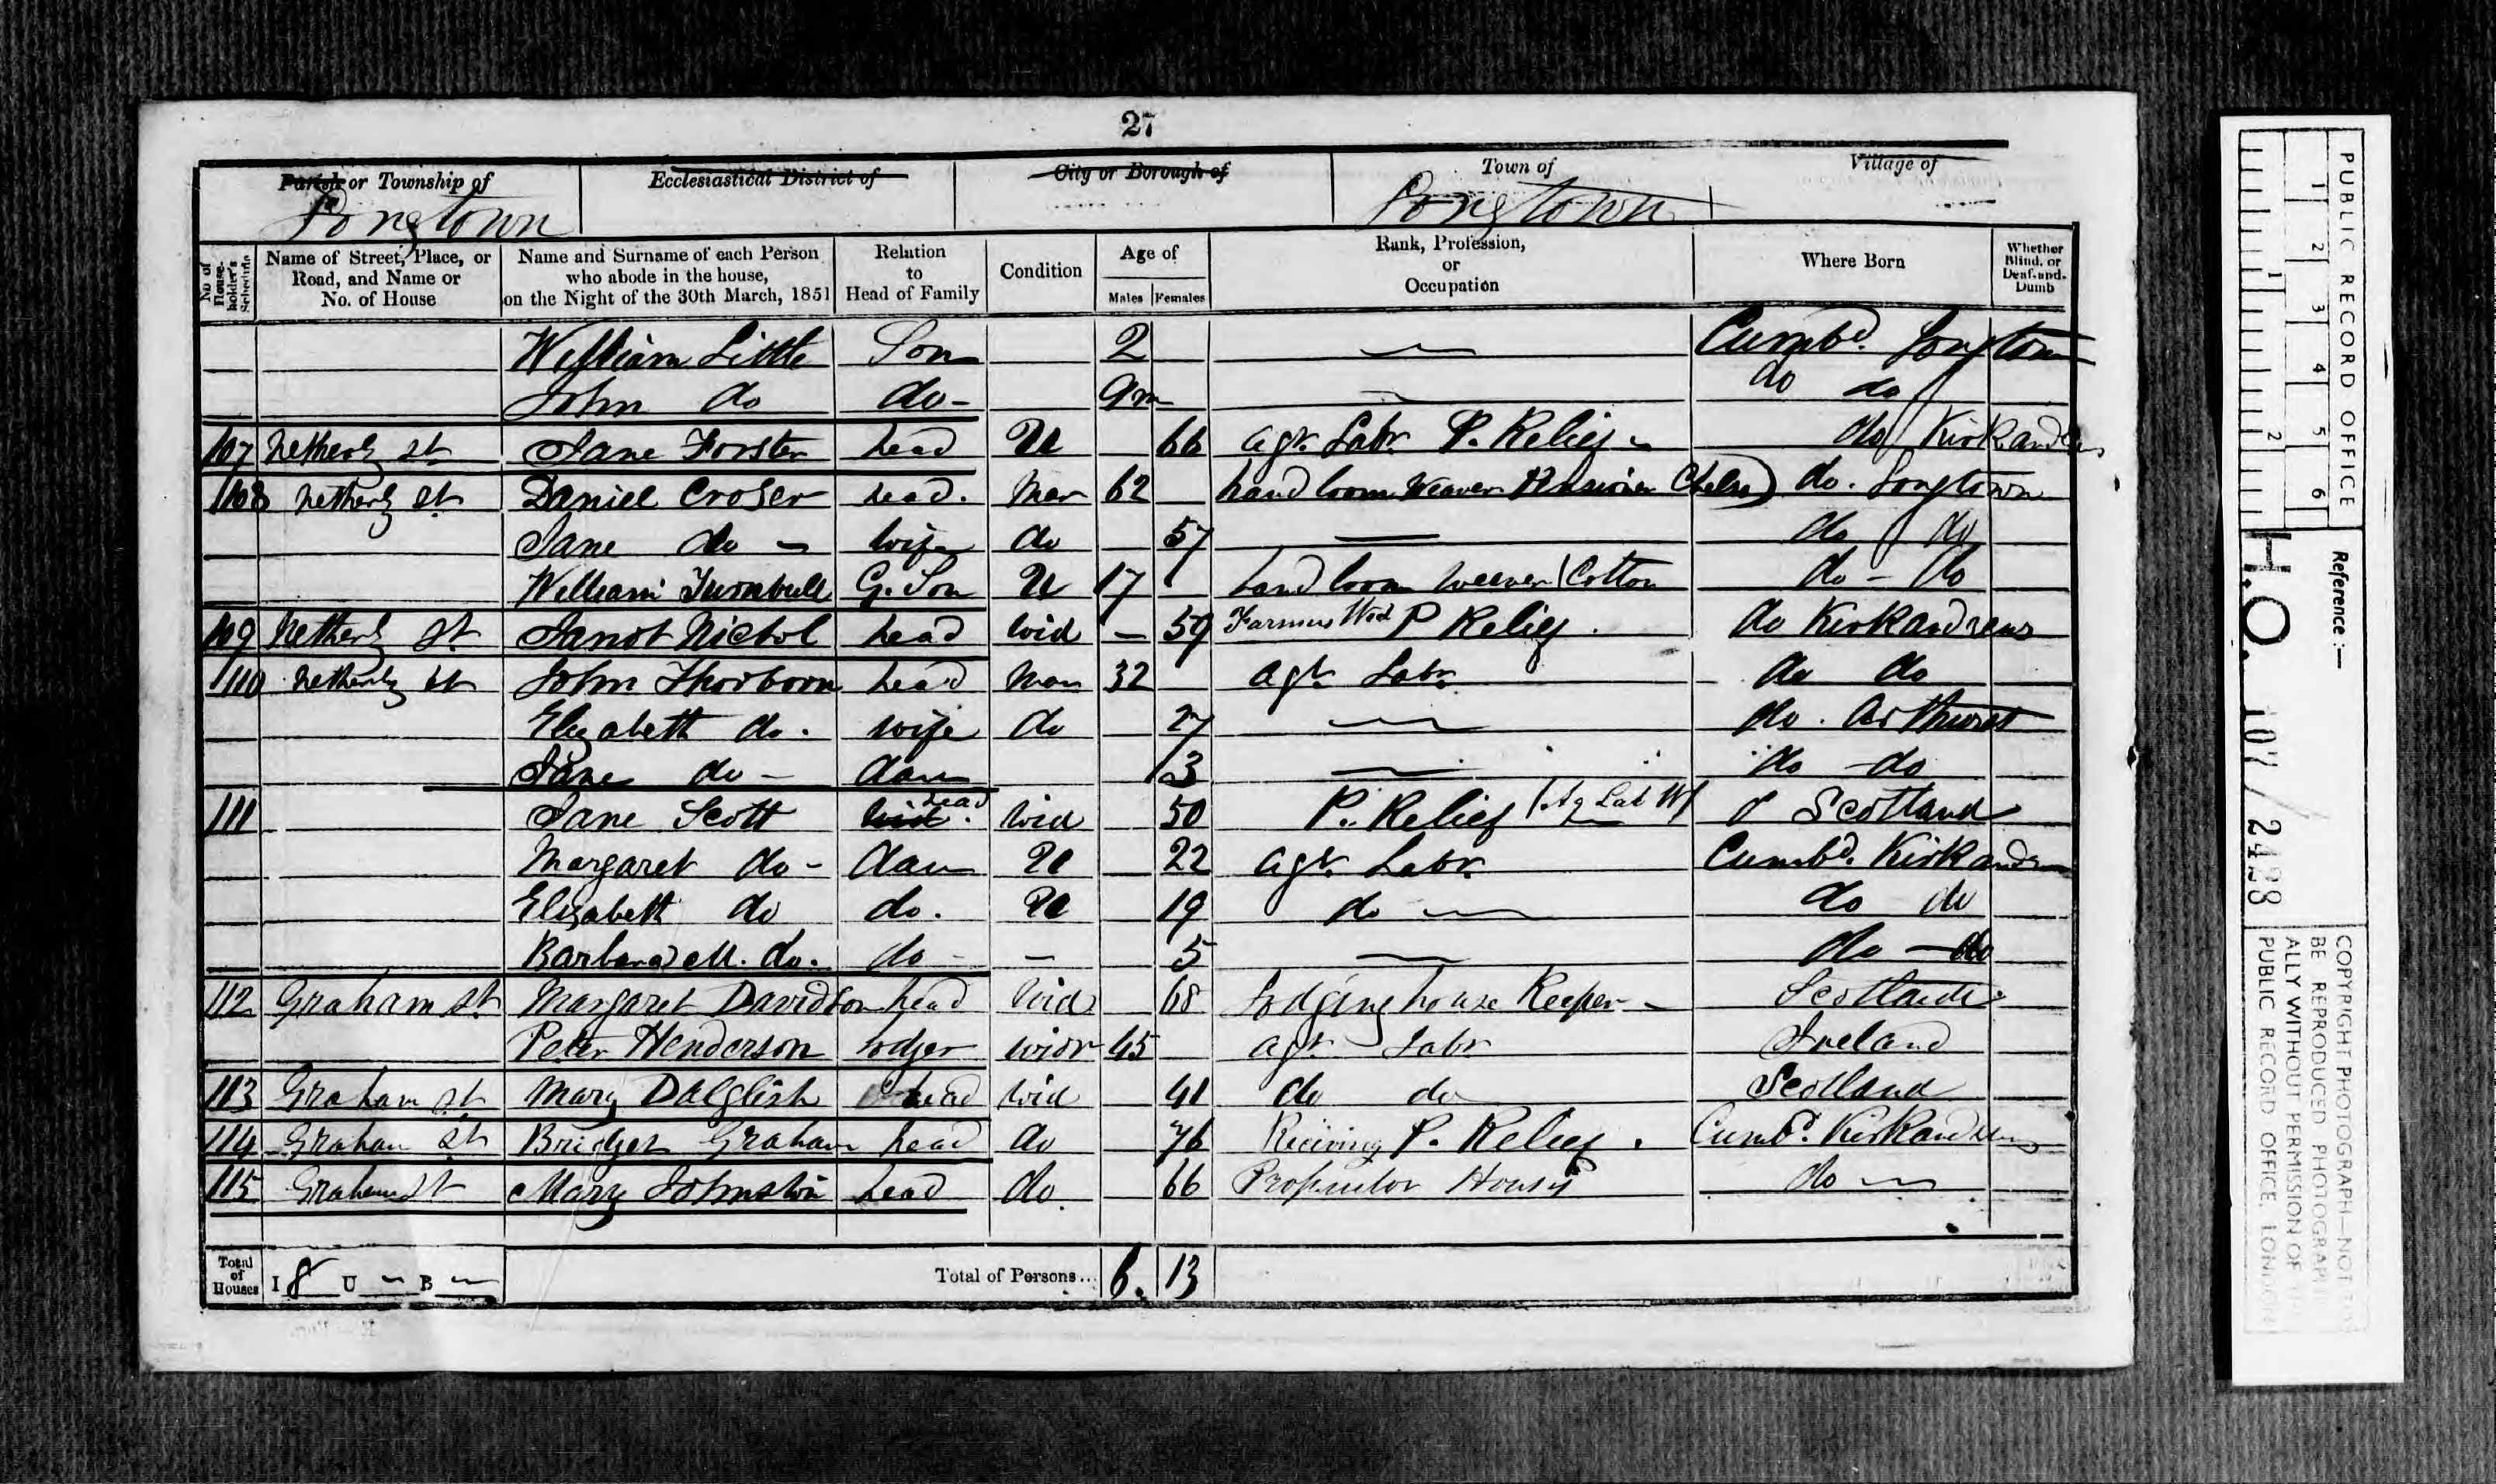 27
Parish or Township of Ecclesiastical District of City or Borough of Town of Village of
Longtown Longtown
No of House-holder's Schedule Name of Street, Place, or Road, and Name or No. of House Name and Surname of each Person who abode in the house, on the Night of the 30th March, 1851 Relation to Head of Family Condition Age of Males Females Rank, Profession, or Occupation Where Born Whether Blind, or Deaf-and-Dumb
William Little Son 2 Cumbd. Longtown
John do do- 9m do do
107 Netherby st Jane Forster head U 66 agr. Labr. P. Relief do Kirkandrews
108 Netherby st Daniel Croser head. Mar 62 hand loom Weaver Pensioner Chelsea) do. Longtown
Jane do - wife do 57 do do
William Turnbull G. Son U 17 hand loom weaver (Cotton do - do
109 Netherby St Janot Nichol head wid - 59 Farmers Wid P Relief. do Kirkandrews
110 Netherby st John Thorborn head Mar 32 agr. Labr. do do
Elizabeth do. wife do 27 do. Arthuret
Jane do - dau 3 do - do
111 Jane Scott head wid 50 P. Relief (Ag Lab W) Scotland
Margaret do - dau U 22 agr. Labr. Cumbd. Kirkandrews
Elizabeth do do. U 19 do do do
Barbara M. do. do - - 5 do - do
112 Graham st Margaret Davidson head Wid 68 Lodging house Keeper - Scotland
Peter Henderson lodger widr 45 agr. Labr Ireland
113 Graham st Mary Dalglish head wid 41 do do Scotland
114 Graham st Bridget Graham head do 76 Reciving P. Relief. Cumbd. Kirkandrews
115 Graham st Mary Johnston head do. 66 Proprietor Houses do
Total of Houses I 8 U - B - Total of Persons... 6. 13
PUBLIC RECORD OFFICE
1 2 3 4 5 6
1 2
Reference:-
H.O. 107/2428
COPYRIGHT PHOTOGRAPH-NOT TO
BE REPRODUCED PHOTOGRAPHIC
ALLY WITHOUT PERMISSION OF THE
PUBLIC RECORD OFFICE, LONDON